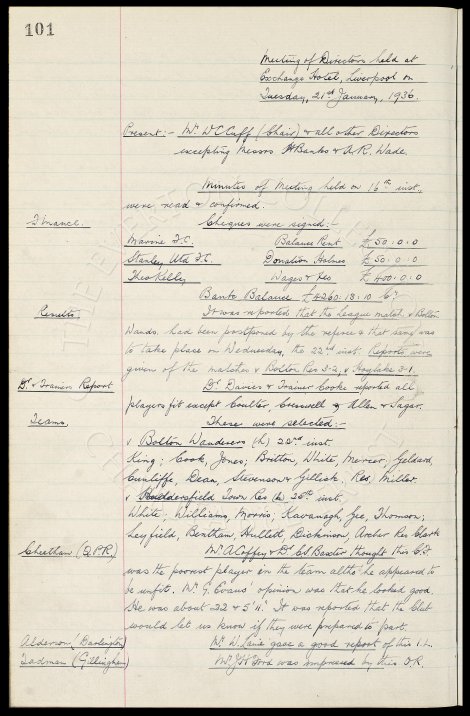 101
Meeting of Directors held at
Exchange Hotel, Liverpool on
Tuesday, 21st January, 1936.
Present:- Mr. W C Cuff (Chair) & all other Directors
excepting Messrs. H Banks & A.R. Wade.
Minutes of Meeting held on 16th inst.,
were read & confirmed.
Finance. Cheques were signed:-
Marine F.C. Balance Rent £50.0.0
Stanley Utd F.C. Donation Holmes £50.0.0
Theo Kelly Wages & Fees £400.0.0
Bank Balance £4260.18.10 Cr.
Results. It was reported that the League match v Bolton
Wands. had been postponed by the referee & that same was
to take place on Wednesday, the 22nd inst. Reports were
given of the matches v Bolton Res 3-2, v Hoylake 3-1.
Dr. & Trainers Report Dr. Davies & Trainer Cooke reported all
players fit except Coulter, Cresswell, Allen & Sagar.
Teams. These were selected:-
v Bolton Wanderers (h) 22nd inst.
King; Cook, Jones; Britton, White, Mercer; Geldard,
Cunliffe, Dean, Stevenson & Gillick. Res, Miller.
v Huddersfield Town Res (h) 25th inst.
White; Williams, Morris; Kavanagh, Gee, Thomson;
Leyfield, Bentham, Hullett, Dickinson, Archer Res Clark
Cheetham (Q.P.R.) Mr A Coffey & Dr. C S Baxter thought this C.F.
was the poorest player in the team altho he appeared to
be unfit. Mr. G. Evans' opinion was that he looked good.
He was about 22 & 5' 11". It was reported that the Club
would let us know if they were prepared to part.
Alderson (Darlington) Mr. W. gave a good report of this
Tadman (Gillingham) Mr. was impressed by this